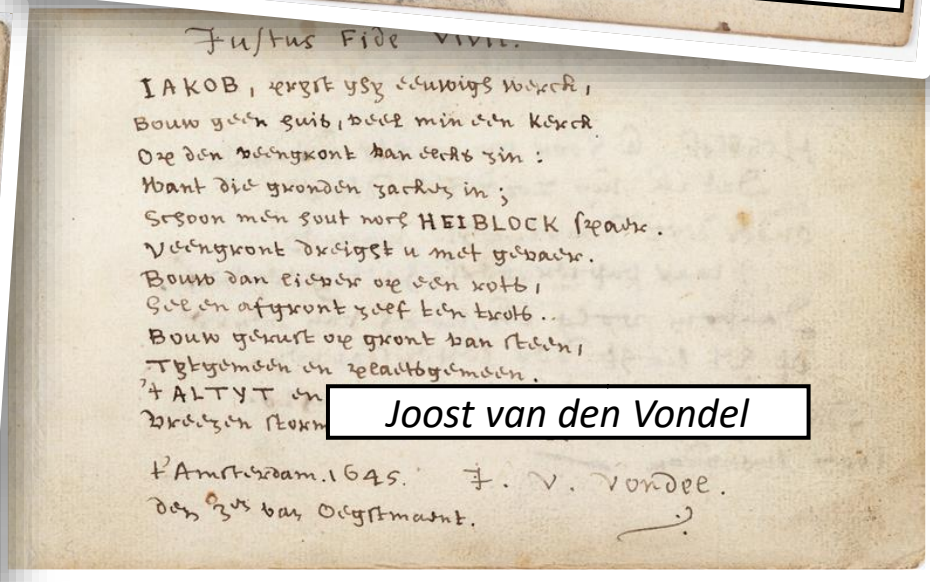 Justus Fide Vivit.
IAKOB, ghy eeuwigh werck,
Bouw geen huis, veel min een Kerck
Op den veengront van elcks zin:
Want die gronden zacken in;
Schoon men hout noch HEIBLOCK spaer.
Veengront dreight u met gevaer.
Bouw dan liever op een rots,
Hel en afgront zelf ten trots..
Bouw gerust op gront van steen,
Tytgemeen en plaetsgemeen.
't ALTYT en
Vreezen storm
Joost van den Vondel
t'Amsterdam.1645. J. V. Vondel.
den 3en van Oegstmaent.